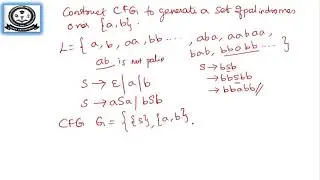 Construct CFG to generate a set of palindromes
over {a,b}.
L = { a, b, aa, bb ...., aba, aabaa,
bab, bbabb }
ab is not pale
S → ε | a | b
S → aSa | bSb
S → bSb
→ bbSbb
→ bbabb //
CFG G = { {S}, {a,b}.